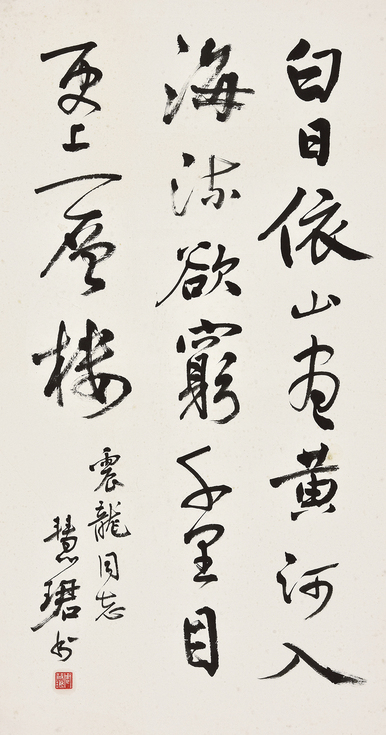 白日依山尽黄河入
海流欲窮千里目
更上一层楼
震龍同志
慧珺书